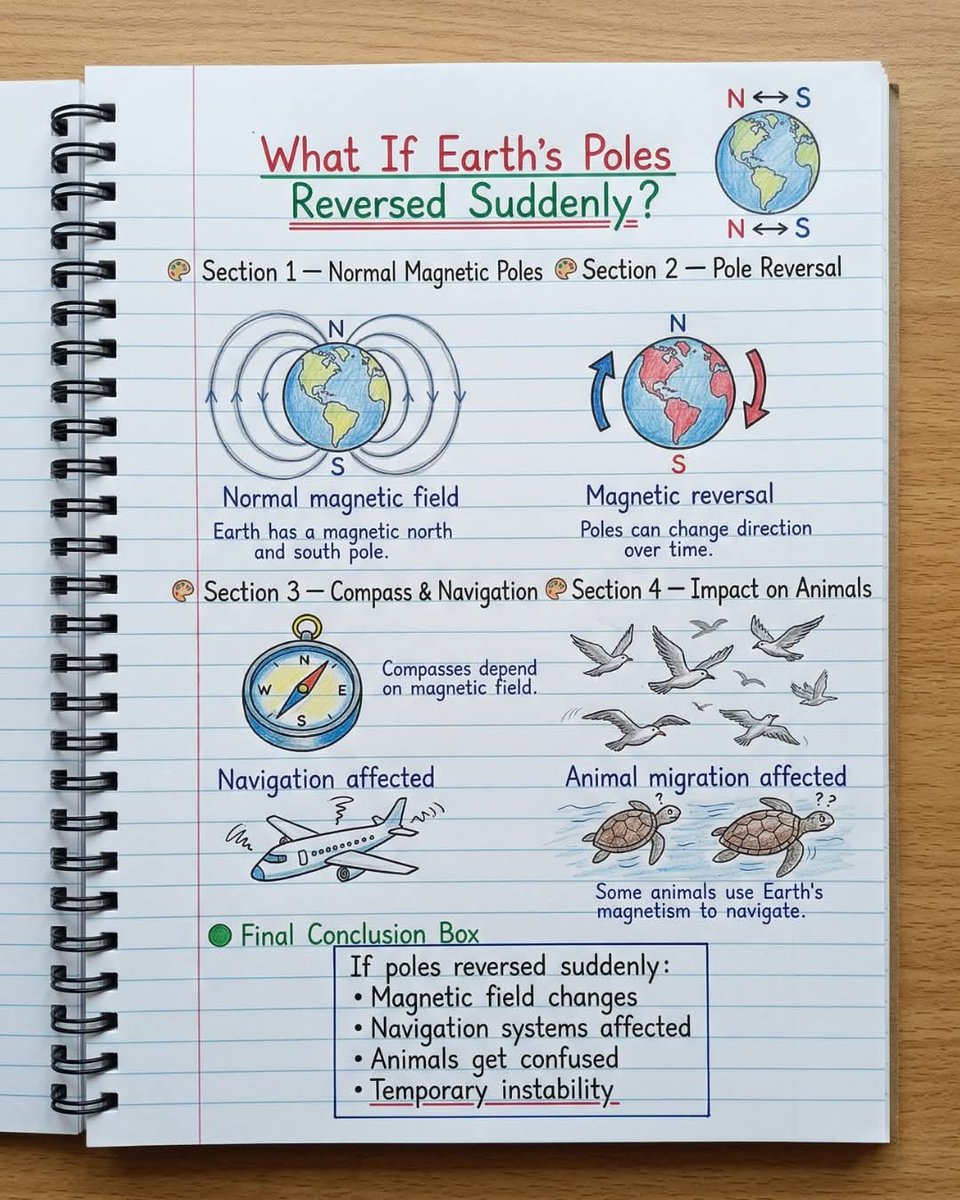 N ↔ S
What If Earth's Poles
Reversed Suddenly?
N ↔ S
Section 1 — Normal Magnetic Poles
N
S
Normal magnetic field
Earth has a magnetic north
and south pole.
Section 2 — Pole Reversal
N
S
Magnetic reversal
Poles can change direction
over time.
Section 3 — Compass & Navigation
N
W
E
S
Compasses depend
on magnetic field.
Navigation affected
Section 4 — Impact on Animals
Animal migration affected
?
??
Some animals use Earth's
magnetism to navigate.
Final Conclusion Box
If poles reversed suddenly:
• Magnetic field changes
• Navigation systems affected
• Animals get confused
• Temporary instability